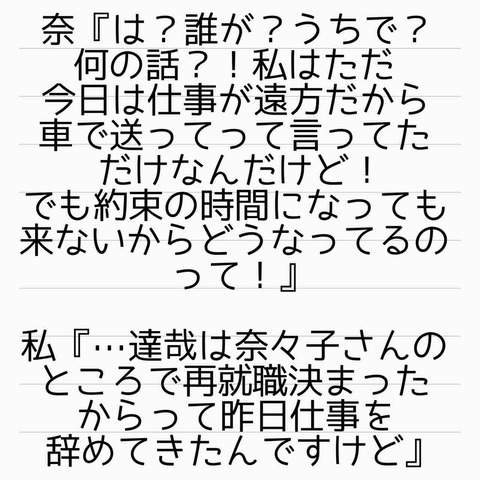 奈『は？誰が？うちで？
何の話？！私はただ
今日は仕事が遠方だから
車で送ってって言ってた
だけなんだけど！
でも約束の時間になっても
来ないからどうなってるの
って！』
私『…達哉は奈々子さんの
ところで再就職決まった
からって昨日仕事を
辞めてきたんですけど』